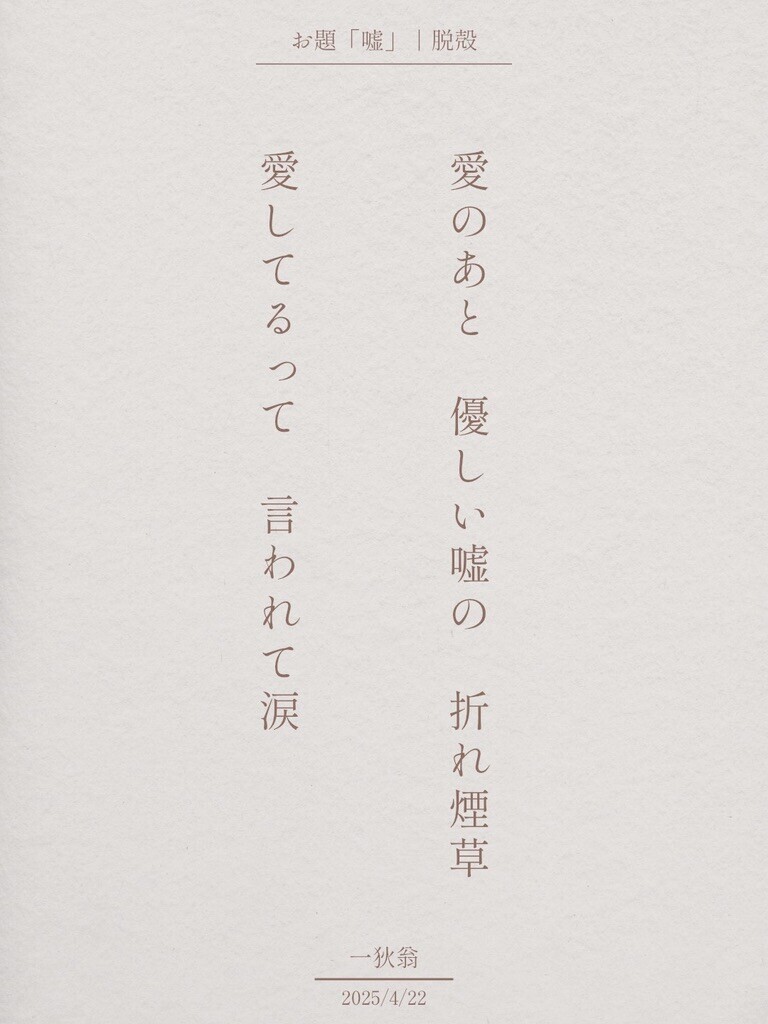 お題「嘘」｜脱殻
愛のあと　優しい嘘の　折れ煙草
愛してるって　言われて涙
一狄翁
2025/4/22